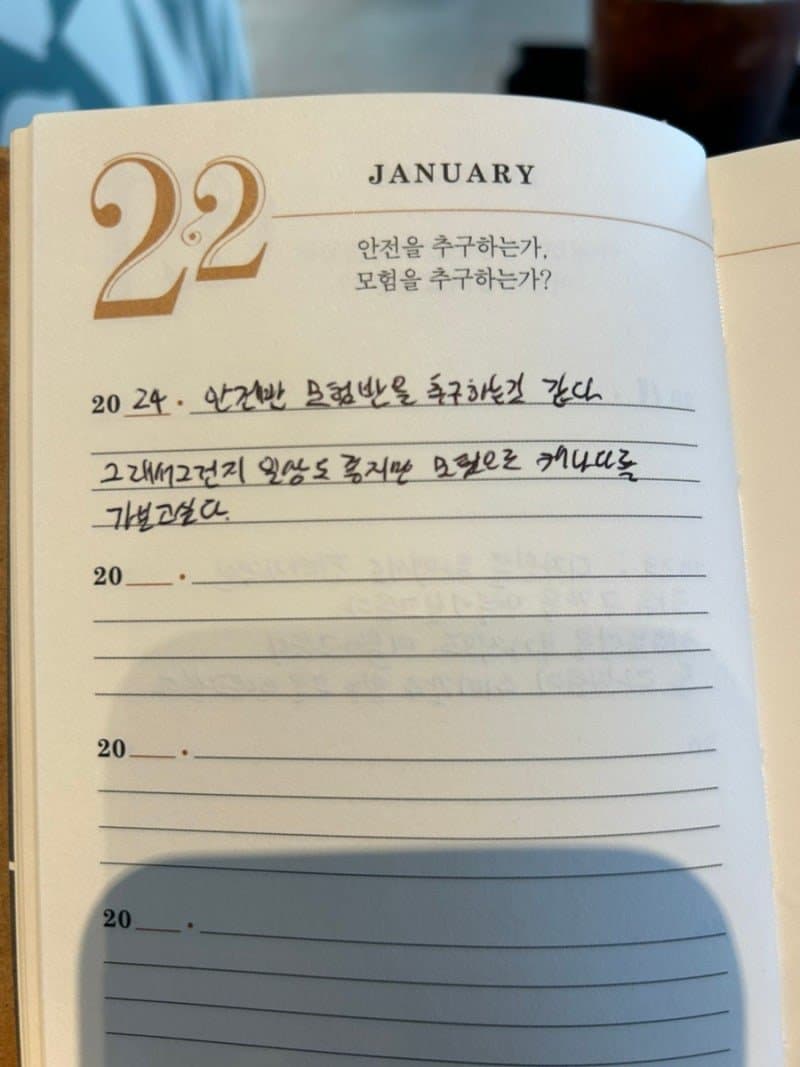 22
JANUARY
안전을 추구하는가,
모험을 추구하는가?
20 24 · 안전반 모험반을 추구하는것 같다.
그래서그런지 일상도 좋지만 모험으로 캐나다를
가보고싶다.
20 ·
20 ·
20 ·